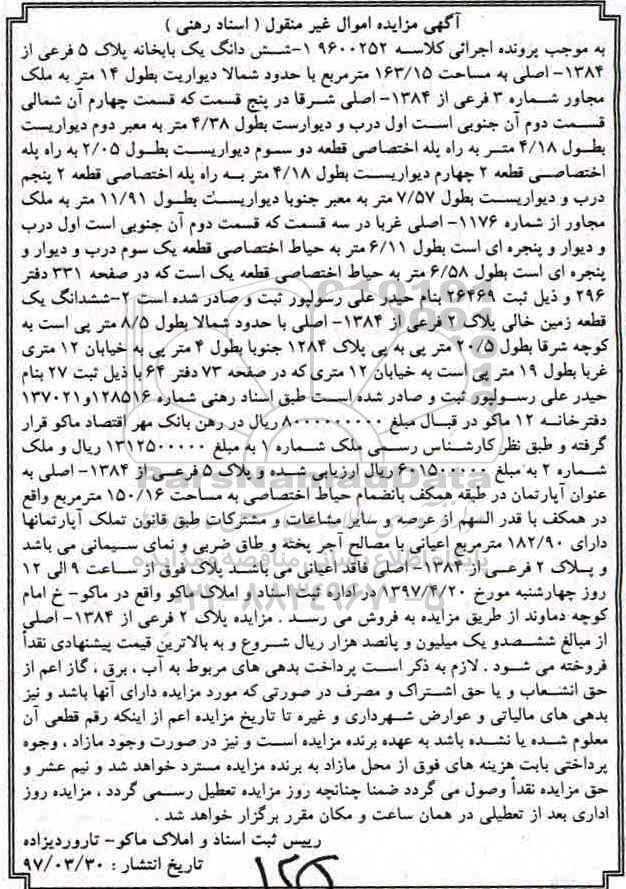 آگهی مزایده اموال غیر منقول ( اسناد رهنی )
به موجب پرونده اجرائی کلاسه ۹۶۰۰۲۵۲ ۱-شش دانگ یک بابخانه پلاک ۵ فرعی از
۱۳۸۴- اصلی به مساحت ۱۶۳/۱۵ مترمربع با حدود شمالا دیواریت بطول ۱۴ متر به ملک
مجاور شماره ۳ فرعی از ۱۳۸۴- اصلی شرقا در پنج قسمت که قسمت چهارم آن شمالی
قسمت دوم آن جنوبی است اول درب و دیوارست بطول ۴/۳۸ متر به معبر دوم دیواریست
بطول ۴/۱۸ متر به راه پله اختصاصی قطعه دو سوم دیواریست بطول ۲/۰۵ به راه پله
اختصاصی قطعه ۲ چهارم دیواریست بطول ۴/۱۸ متر به راه پله اختصاصی قطعه ۲ پنجم
درب و دیواریست بطول ۷/۵۷ متر به معبر جنوبا دیواریست بطول ۱۱/۹۱ متر به ملک
مجاور از شماره ۱۱۷۶- اصلی غربا در سه قسمت که قسمت دوم آن جنوبی است اول درب
و دیوار و پنجره ای است بطول ۶/۱۱ متر به حیاط اختصاصی قطعه یک سوم درب و دیوار و
پنجره ای است بطول ۶/۵۸ متر به حیاط اختصاصی قطعه یک است که در صفحه ۳۳۱ دفتر
۲۹۶ و ذیل ثبت ۲۶۴۶۹ بنام حیدر علی رسولپور ثبت و صادر شده است ۲-ششدانگ یک
قطعه زمین خالی پلاک ۲ فرعی از ۱۳۸۴- اصلی با حدود شمالا بطول ۸/۵ متر پی است به
کوچه شرقا بطول ۲۰/۵ متر پی به پی پلاک ۱۲۸۴ جنوبا بطول ۴ متر پی به خیابان ۱۲ متری
غربا بطول ۱۹ متر پی است به خیابان ۱۲ متری که در صفحه ۷۳ دفتر ۶۴ با ذیل ثبت ۲۷ بنام
حیدر علی رسولپور ثبت و صادر شده است طبق اسناد رهنی شماره ۱۲۸۵۱۶و۱۳۷۰۲۱
دفترخانه ۱۲ ماکو در قبال مبلغ ۸۰۰۰۰۰۰۰۰۰ ریال در رهن بانک مهر اقتصاد ماکو قرار
گرفته و طبق نظر کارشناس رسمی ملک شماره ۱ به مبلغ ۱۳۱۲۵۰۰۰۰۰ ریال و ملک
شماره ۲ به مبلغ ۶۰۱۵۰۰۰۰۰ ریال ارزیابی شده و پلاک ۵ فرعی از ۱۳۸۴- اصلی به
عنوان آپارتمان در طبقه همکف بانضمام حیاط اختصاصی به مساحت ۱۵۰/۱۶ مترمربع واقع
در همکف با قدر السهم از عرصه و سایر مشاعات و مشترکات طبق قانون تملک آپارتمانها
دارای ۱۸۲/۹۰ مترمربع اعیانی با مصالح آجر پخته و طاق ضربی و نمای سیمانی می باشد
و پلاک ۲ فرعی از ۱۳۸۴- اصلی فاقد اعیانی می باشد پلاک فوق از ساعت ۹ الی ۱۲
روز چهارشنبه مورخ ۱۳۹۷/۴/۲۰ در اداره ثبت اسناد و املاک ماکو واقع در ماکو- خ امام
کوچه دماوند از طریق مزایده به فروش می رسد . مزایده پلاک ۲ فرعی از ۱۳۸۴- اصلی
از مبالغ ششصدو یک میلیون و پانصد هزار ریال شروع و به بالاترین قیمت پیشنهادی نقداً
فروخته می شود . لازم به ذکر است پرداخت بدهی های مربوط به آب ، برق ، گاز اعم از
حق انشعاب و یا حق اشتراک و مصرف در صورتی که مورد مزایده دارای آنها باشد و نیز
بدهی های مالیاتی و عوارض شهرداری و غیره تا تاریخ مزایده اعم از اینکه رقم قطعی آن
معلوم شده یا نشده باشد به عهده برنده مزایده است و نیز در صورت وجود مازاد ، وجوه
پرداختی بابت هزینه های فوق از محل مازاد به برنده مزایده مسترد خواهد شد و نیم عشر و
حق مزایده نقداً وصول می گردد ضمنا چنانچه روز مزایده تعطیل رسمی گردد ، مزایده روز
اداری بعد از تعطیلی در همان ساعت و مکان مقرر برگزار خواهد شد .
رییس ثبت اسناد و املاک ماکو- تاروردیزاده
تاریخ انتشار : ۹۷/۰۳/۳۰
ParsNamadData
۰۲۱-۸۸۳۴۹۶۷۰-۵